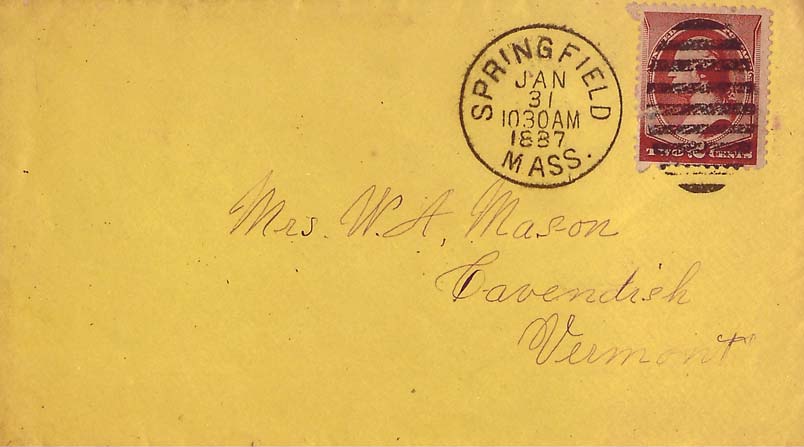 SPRINGFIELD
JAN
31
1030AM
1887
MASS.
TWO 2 CENTS
Mrs. W. A. Mason
Cavendish
Vermont